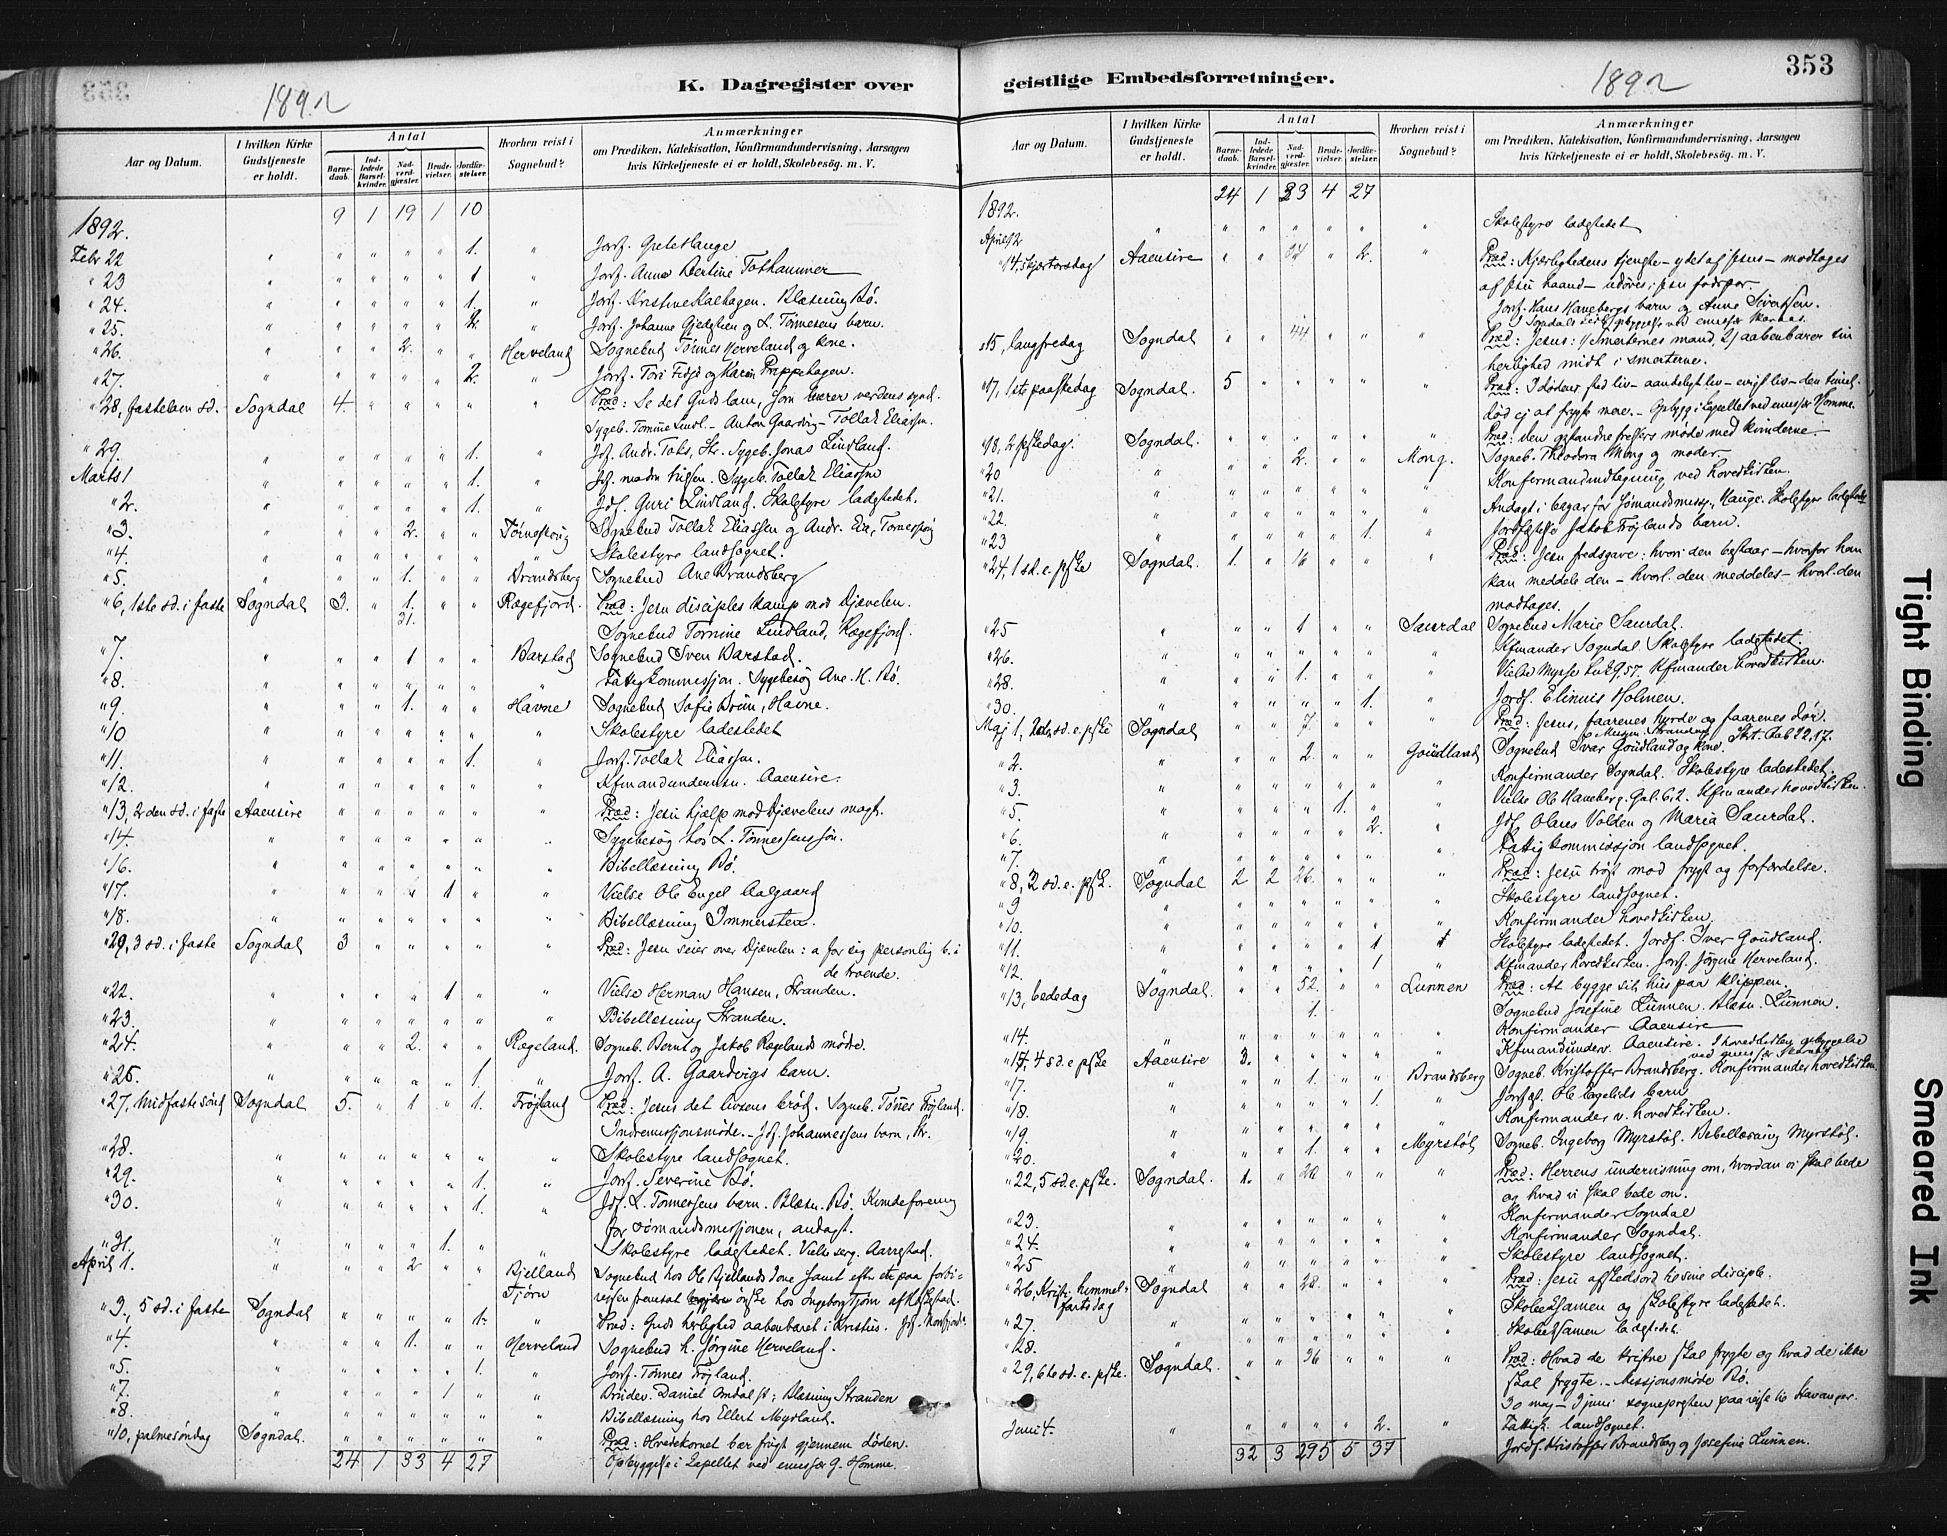 353
K. Dagregister over geistlige Embedsforretninger.
1892
1892
Aar og Datum.
I hvilken Kirke Gudstjeneste er holdt.
Antal
Barnedaab.
Indledede Barselkvinder.
Nadverdgjæster.
Brudevielser.
Jordfæstelser.
Hvorhen reist i Sognebud?
Anmærkninger
om Prædiken, Katekisation, Konfirmandundervisning, Aarsagen
hvis Kirketjeneste ei er holdt, Skolebesøg. m. V.
1892. 9 1 19 1 10
Febr 22 " " " " " 1. " Jordf. Grete Hauge
" 23 " " " " " 1 " Jordf. Anna Bertine Tothammer
" 24. " " " " " 1. " Jordf. Kristine Kalhagen. Blæsning Bø.
" 25. " " " " " 2 " Jordf. Johanne Gjedglien og L. Tönnesens barn.
" 26. " " " 2. " " Herveland Sognebud Tönnes Herveland og kone.
" 27. " " " " " 2. " Jordf. Tori Fidje og Karen Prippehagen.
" 28, fastelavn sd. Sogndal 4. " " " " " Præd: Se det Guds lam, som bærer verdens synd.
Sygeb. Tomine Lindl. – Anton Gaardvig – Tollak Eliassen.
" 29. " " " " " 1. " Jf. Andr. Toks, Str. Sygeb. Jonas Lindland.
Marts 1 " " " " " 1. " Jf. madm Nissen. Sygeb. Tollak Eliassen
" 2. " " " " " 1. " Jdf. Guri Lindland. Skolestyre ladestedet.
" 3. " " " 2. " " Tørneskoug Sognebud Tollak Eliassen og Andr. Eia, Torneskoug
" 4. " " " " " " " Skolestyre landsognet.
" 5. " " " 1. " " Brandsberg Sognebud Ane Brandsberg
" 6, 1ste sd. i faste Sogndal 3. " 1. " " Rægefjord. Præd: Jesu disciples kamp mod Djævelen.
31. Sognebud Tomine Lindland, Rægefjord.
" 7. " " " 1 " " Barstad Sognebud Sven Barstad.
" 8. " " " " " " " Fattigkommissjon. Sygebesøg Ane K. Bø.
" 9. " " " 1. " " Havne Sognebud Sofie Bruun, Havne.
" 10 " " " " " " " Skolestyre ladestedet
" 11. " " " " " 1. " Jordf. Tollak Eliassen.
" 12. " " " " " " " Kfmandundervisn. Aaensire.
" 13, 2den sd. i faste Aaensire " " " " " " Præd: Jesu hjælp mod Djævelens magt.
" 14. " " " " " " " Sygebesøg hos L. Tönnessenssön.
" 16. " " " " " " " Bibellæsning Bø.
" 17. " " " " 1 " " Vielse Ole Engel Aalgaard
" 18. " " " " " " " Bibellæsning Immersten.
" 20, 3 sd. i faste Sogndal 3 " " " " " Præd: Jesu seier over Djævelen: a for sig personlig b. i
de troende.
" 22. " " " " 1 " " Vielse Herman Hansen, Stranden.
" 23. " " " " " " " Bibellæsning Stranden.
" 24. " " " 2. " " Rægeland. Sogneb. Bernt og Jakob Rægelands mødre.
" 25. " " " " " 1. " Jordf. A. Gaardvigs barn.
" 27, Midfastesönd Sogndal 5. " 1 " 1. Frøjland Præd: Jesus det livsens brød. Sogneb. Tönnes Frøjland.
Indremissjonsmøde. – Jf. Johannessens barn, Str.
" 28. " " " " " " " Skolestyre landsognet.
" 29. " " " " " 1. " Jordf. Severine Bø.
" 30. " " " " " 1. " Jdf. L. Tonnessens barn. Blæsn. Bø. Kvindeforening
for sömandsmissjonen, andagt.
" 31. " " " " 1. " " Skolestyre ladestedet. Vielse rg. Aarrestad.
April 1. " " " 2 " " Bjelland Tjörn Sognebud hos Ole Bjellands kone samt efter et paa forbi-
reisen fremsat önske hos Ingeborg Tjörn af Heskestad.
" 3., 5 sd. i faste Sogndal " " " " 1. " Præd: Guds herlighed aabenbaret i Kristus.
" 4. " " " 1. " " Herveland Sognebud h. Jörgine Herveland.
" 5. " " " " " 1. " Jordf. Tönnes Frøjland.
" 7. " " " " 1 " " Brudev. Daniel Omdal; Blæsning Stranden
" 8. " " " " " " " Bibellæsning hos Ellert Myrland.
" 10, palmesöndag Sogndal. " " " " " " Præd: Hvedekornet bær frugt gjennem døden.
24 1 33 4 27 Opbyggelse i Kapellet ved emissær G. Homme.
353
Aar og Datum.
I hvilken Kirke Gudstjeneste er holdt.
Antal
Barnedaab.
Indledede Barselkvinder.
Nadverdgjæster.
Brudevielser.
Jordfæstelser.
Hvorhen reist i Sognebud?
Anmærkninger
om Prædiken, Katekisation, Konfirmandundervisning, Aarsagen
hvis Kirketjeneste ei er holdt, Skolebesög. m. V.
1892. 24 1 33 4 27
April 12 " " " " " " " Skolestyre ladestedet
" 14, Skjærtorsdag Aaensire " " 24 " 2. " Præd: Kjærlighedens tjeneste – ydet af Jesus – modtages
af Jesu haand – udöves i Jesu fodspor.
Jordf. Hans Hanebergs barn og Anne Sivertsen.
" 15, langfredag Sogndal " " 44 " " " Præd: Jesus: 1) Smerternes mand, 2) aabenbarer sin
herlighed midt i smerterne.
" 17, 1ste paaskedag Sogndal. 5 " " " " " Præd: I dødens sted liv – aandeligt liv – evigt liv – den timel.
død ej at frygte mere. – Opbygg. i Kapellet ved emissær Homme.
" 18, 2 pskedag. Sogndal. " " " " " " Præd: den opstandne frelsers møde med kvinderne.
" 20 " " " 2. " " Mong. Sogneb. Theodora Mong og moder.
" 21. " " " " " " " Konfirmandmodtagning ved hovedkirken.
" 22. " " " " " " " Andagt i bazar for sömandsmiss., Hauge. Skolestyre ladestedet
" 23 " " " " " 1. " Jordfæstelse Jakob Frøjlands barn.
" 24, 1 sd. e. pske Sogndal. 1. " 16 " " " Præd: Jesu fredsgave: hvori den bestaar – hvorfor han
kan meddele den – hvorl. den meddeles – hvorl. den
modtages.
" 25 " " " 1 " " Saurdal Sognebud Marie Saurdal.
" 26. " " " " " " " Kfmander Sogndal Skolestyre ladestedet.
" 28. " " " 1. " " Vielse Myrse Luk 9,57. Kfmander hovedkirken.
" 30. " " " " " 1. " Jordf. Elinius Holmen.
Maj 1, 2den sd. e. pske Sogndal " " 7. " " " Præd: Jesus, faarenes hyrde og faarenes dør.
" 2. " " " 2. " " Goudland Sognebud Ivar Goudland og kone.
" 3. " " " " " " " Konfirmander Sogndal. Skolestyre ladestedet.
" 5. " " " " 1. " " Vielse Ole Haneberg. Gal. 6,2. Kfmander hovedkirken.
" 6. " " " " " 2. " Jdf. Olaus Valden og Maria Saurdal.
" 7. " " " " " " " Fattigkommissjon landsognet.
" 8, 3 sd. e. psk. Sogndal 2 2 26. " " " Præd: Jesu trøst mod frygt og forfærdelse.
" 9 " " " " " " " Skolestyre landsognet.
" 10. " " " " " " " Konfirmander hovedkirken.
" 11. " " " " " 1 " Skolestyre ladestedet. Jordf. Iver Goudland.
" 12. " " " " " 1 " Kfmander hovedkirken. Jordf. Jörgine Herveland.
" 13, bededag Sogndal. " " 52. " " Lunnen Præd: At bygge sit hus paa klippen.
1. Sognebud Josefine Lunnen. Blæsn. Lunnen.
" 14. " " " " " " " Konfirmander Aaensire
" 15, 4 sd. e. pske Aaensire 3. " " " " " Kfmandunderv. Aaensire. I hovedkirken opbyggelse
ved emissær Skarnes
" 17. " " " 1. " " Brandsberg Sogneb. Kristoffer Brandsberg. Konfirmander hovedkirken.
" 18. " " " " " 1. " Jordfæst. Ole Egelids barn
" 19. " " " " " " " Konfirmander v. hovedkirken.
" 20. " " " 1. " " Myrstøl Sogneb. Ingeborg Myrstøl. Bibellæsning Myrstøl.
" 22, 5 sd. e. pske. Sogndal. 1. " 20 " " " Præd: Herrens undervisning om, hvordan vi skal bede
og hvad vi skal bede om.
" 23. " " " " " " " Konfirmander Sogndal
" 24. " " " " " " " Konfirmander Sogndal.
" 25 " " " " " " " Skolestyre landsognet.
" 26, Kristi himmel-fartsdag Sogndal " " 28. " " " Præd: Jesu afskedsord til sine disciple.
" 27. " " " " " " " Skoleeksamen og skolestyre ladestedet.
" 28. " " " " " " " Skoleeksamen ladestedet.
" 29, 6te sd. e. pske. Sogndal. " " 36 " " " Præd: Hvad de kristne skal frygte og hvad de ikke
skal frygte. – Missjonsmøde Bø.
30 maj – 3 juni sognepresten paa reise til Stavanger.
Juni 4. " " " " " 2. " Fattigk. landsognet.
32 3 295 5 37 Jordf. Kristoffer Brandsberg og Josefine Lunnen.
Tight Binding
Smeared Ink